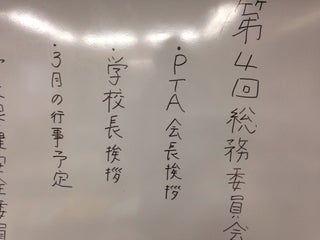 第4回総務委員会
・PTA会長挨拶
・学校長挨拶
・3月の行事予定
保健安全委員